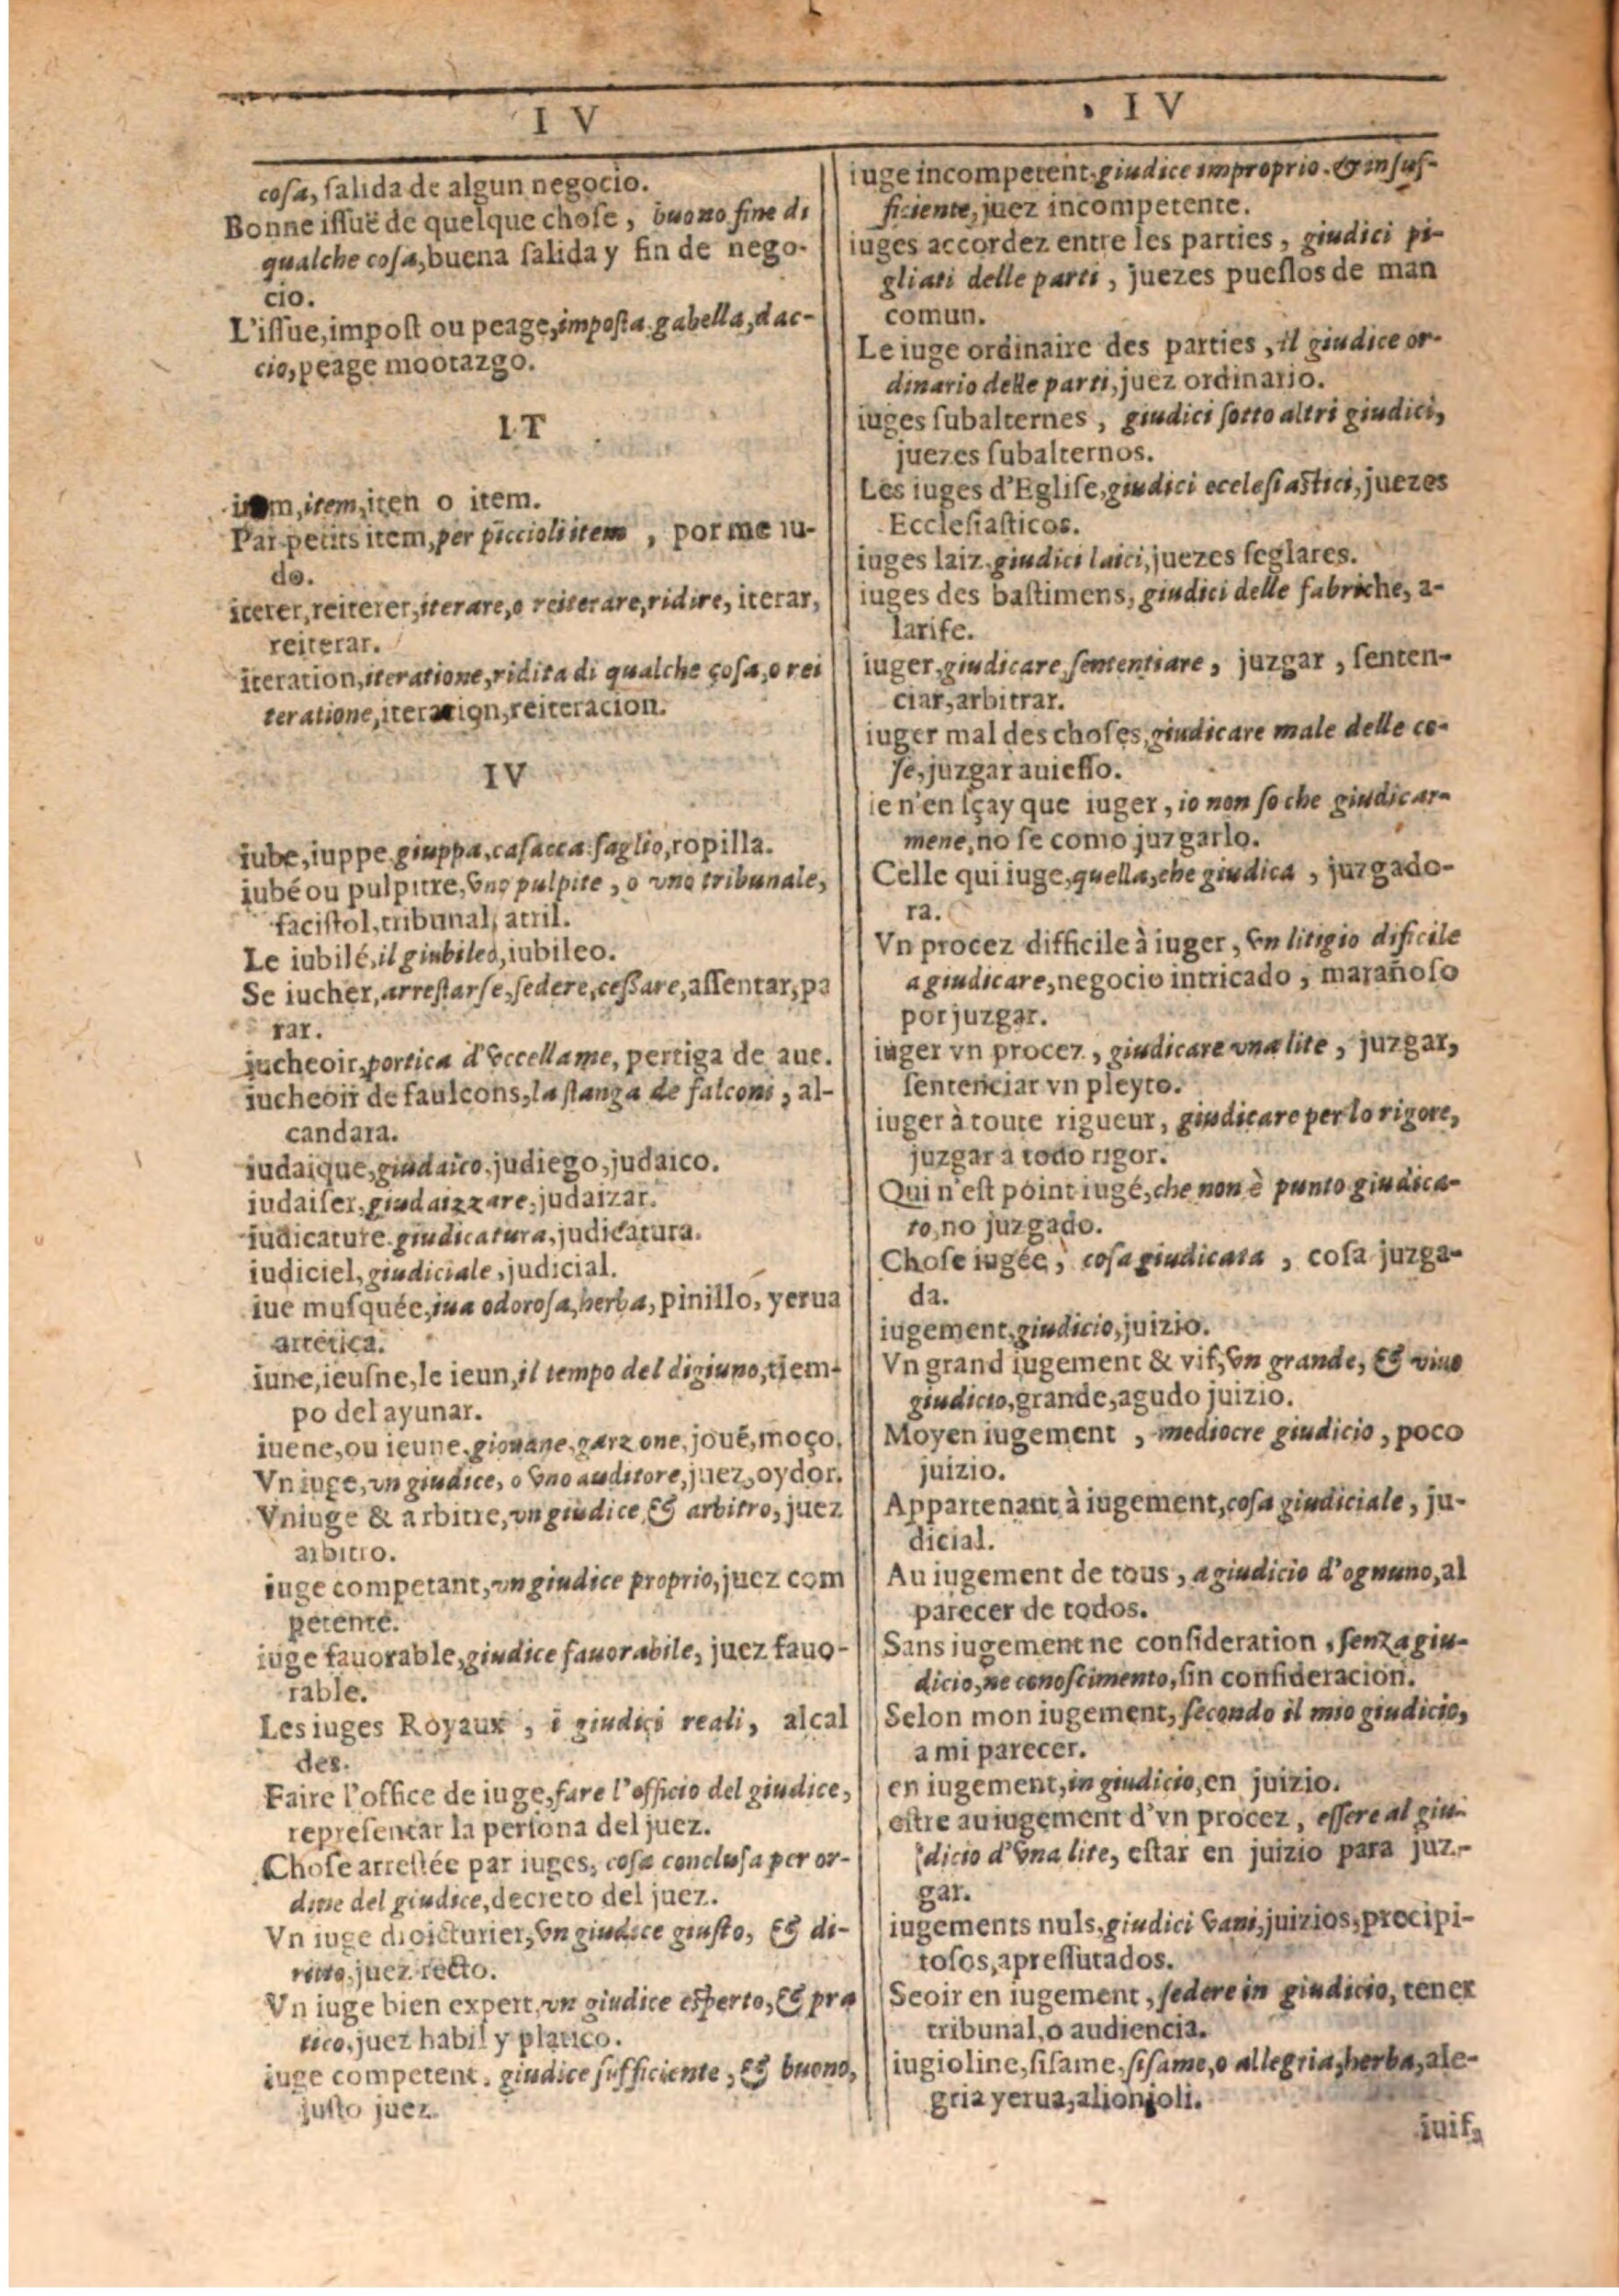 I V
cosa, salida de algun negocio.
Bonne issuë de quelque chose, buono fine di
qualche cosa, buena salida y fin de nego-
cio.
L'issue, impost ou peage, imposta gabella, dac-
cio, peage mootazgo.
I T
item, iten o item.
Par petits item, per piccioli item, por me iu-
do.
iterer, reiterer, iterare, o reiterare, ridire, iterar,
reiterar.
iteration, iteratione, ridita di qualche cosa, o rei
teratione, iteration, reiteracion.
IV
iube, iuppe, giuppa, casacca saglio, ropilla.
iubé ou pulpitre, vno pulpite, o vno tribunale,
facistol, tribunal, atril.
Le iubilé, il giubileo, iubileo.
Se iucher, arrestarse, sedere, cessare, assentar, pa
rar.
iucheoir, portica d'vccellame, pertiga de aue.
iucheoir de faulcons, la stanga de falconi, al-
candara.
iudaique, giudaico, judiego, judaico.
iudaiser, giudaizzare, judaizar.
iudicature, giudicatura, judicatura.
iudiciel, giudiciale, judicial.
iue musquée, iua odorosa, herba, pinillo, yerua
artetica.
iune, ieusne, le ieun, il tempo del digiuno, tiem-
po del ayunar.
iuene, ou ieune, giouane, garzone, joué, moço.
Vn iuge, vn giudice, o vno auditore, juez, oydor.
Vn iuge & arbitre, vn giudice & arbitro, juez
arbitro.
iuge competant, vn giudice proprio, juez com
petente.
iuge fauorable, giudice fauorabile, juez fauo-
rable.
Les iuges Royaux, i giudici reali, alcal
des.
Faire l'office de iuge, fare l'officio del giudice,
representar la persona del juez.
Chose arrestée par iuges, cosa conclusa per or-
dine del giudice, decreto del juez.
Vn iuge droicturier, vn giudice giusto, & di-
ritto, juez recto.
Vn iuge bien expert, vn giudice esperto, & pra
tico, juez habil y platico.
iuge competent, giudice sufficiente, & buono,
justo juez.
IV
iuge incompetent, giudice improprio. & insuf-
ficiente, juez incompetente.
iuges accordez entre les parties, giudici pi-
gliati delle parti, juezes puestos de man
comun.
Le iuge ordinaire des parties, il giudice or-
dinario delle parti, juez ordinario.
iuges subalternes, giudici sotto altri giudici,
juezes subalternos.
Les iuges d'Eglise, giudici ecclesiastici, juezes
Ecclesiasticos.
iuges laiz, giudici laici, juezes seglares.
iuges des bastimens, giudici delle fabriche, a-
larife.
iuger, giudicare, sententiare, juzgar, senten-
ciar, arbitrar.
iuger mal des choses, giudicare male delle co-
se, juzgar auiesso.
ie n'en sçay que iuger, io non so che giudicar-
mene, no se como juzgarlo.
Celle qui iuge, quella, che giudica, juzgado-
ra.
Vn procez difficile à iuger, vn litigio dificile
a giudicare, negocio intricado, marañoso
por juzgar.
iuger vn procez, giudicare vna lite, juzgar,
sentenciar vn pleyto.
iuger à toute rigueur, giudicare per lo rigore,
juzgar a todo rigor.
Qui n'est point iugé, che non è punto giudica-
to, no juzgado.
Chose iugée, cosa giudicata, cosa juzga-
da.
iugement, giudicio, juizio.
Vn grand iugement & vif, vn grande, & viuo
giudicio, grande, agudo juizio.
Moyen iugement, mediocre giudicio, poco
juizio.
Appartenant à iugement, cosa giudiciale, ju-
dicial.
Au iugement de tous, a giudicio d'ognuno, al
parecer de todos.
Sans iugement ne consideration, senza giu-
dicio, ne conoscimento, sin consideracion.
Selon mon iugement, secondo il mio giudicio,
a mi parecer.
en iugement, in giudicio, en juizio.
estre au iugement d'vn procez, essere al giu-
dicio d'vna lite, estar en juizio para juz-
gar.
iugements nuls, giudici vani, juizios, precipi-
tosos, apressurados.
Seoir en iugement, sedere in giudicio, tener
tribunal, o audiencia.
iugioline, sisame, sisame, o allegria, herba, ale-
gria yerua, alionjoli.
iuif,